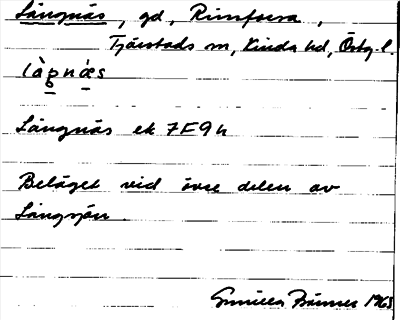 Långnäs, gd, Rimforsa,
Tjärstads sn, Kinda hd, Östg. l.
Långnäs ek 7F9h
Beläget vid övre delen av
Långsjön.
Gunilla 1963